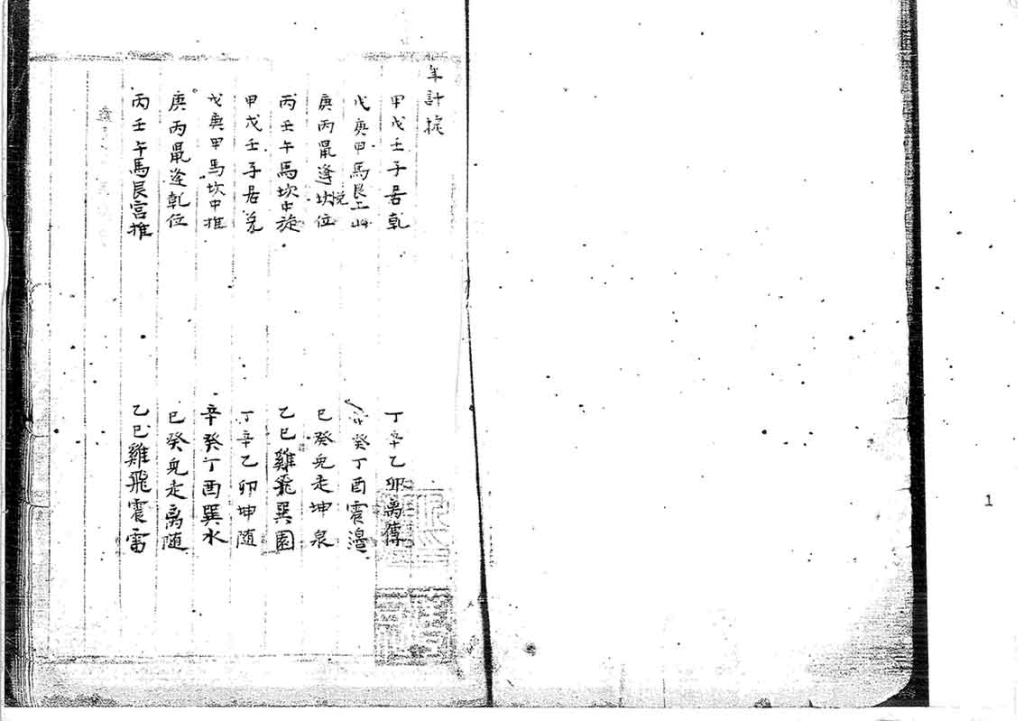 年計捴
甲戊壬子居乾 丁辛乙卯离傳
戊庚甲馬艮山 辛癸丁酉震邉
庚丙鼠逢坎位 已癸兎走坤泉
悅
丙壬午馬坎中旋 乙巳雞飛巽園
甲戊壬子居兊 丁辛乙卯坤随
戊庚甲馬坎中推 辛癸丁酉巽水
庚丙鼠逢乾位 已癸兎走离随
丙壬午馬艮宮推 乙巳雞飛震雷
1